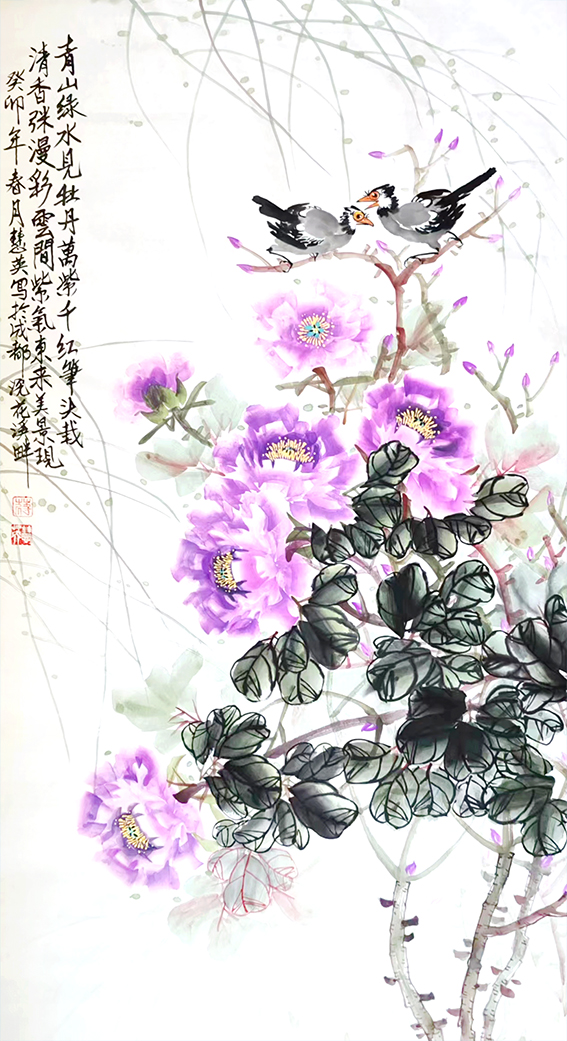 青山绿水見牡丹萬紫千红筆头栽
清香弥漫彩雲間紫氣東来美景現
癸卯年春月慧英写於成都浣花溪畔